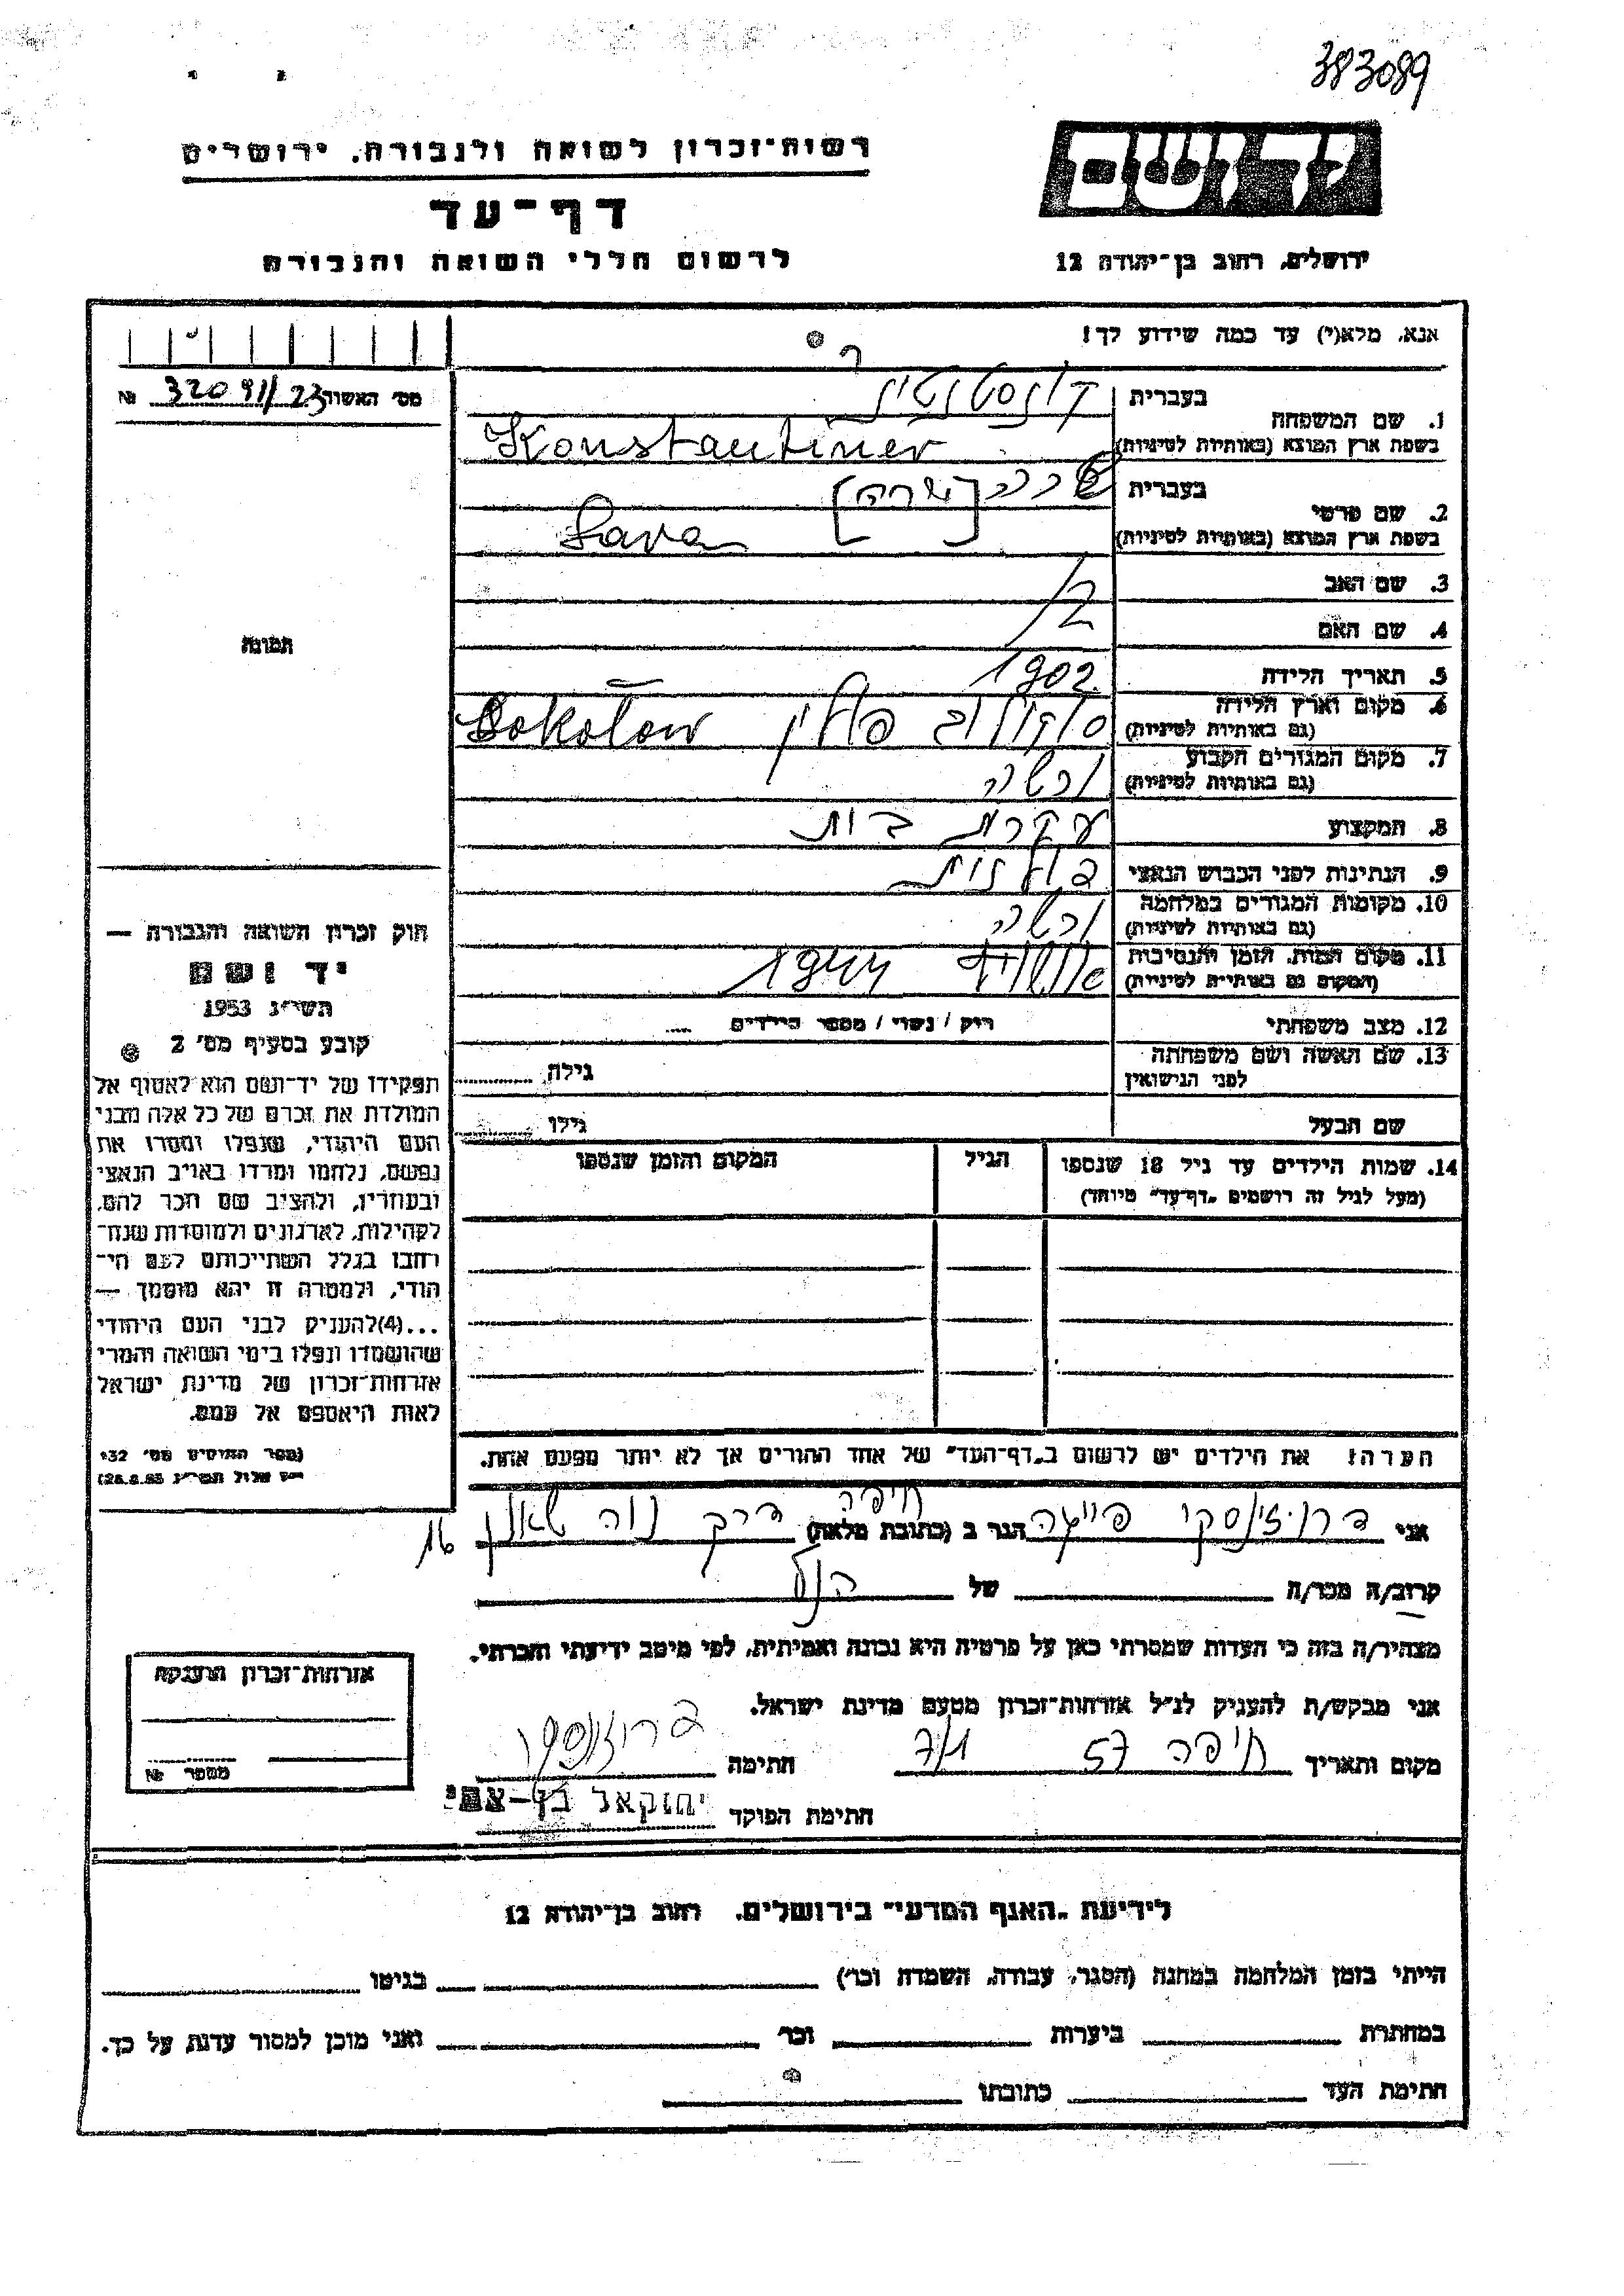 383089
יד ושם
רשות-זכרון לשואה ולגבורה, ירושלים
דף-עד
לרשום חללי השואה והגבורה
ירושלים, רחוב בן-יהודה 12
אנא, מלא(י) עד כמה שידוע לך!
מס' האשור 32091/23 №
1. שם המשפחה
בעברית קונסטנטינר
בשפת ארץ המוצא (באותיות לטיניות) Konstantiner
2. שם פרטי
בעברית [שרה]
בשפת ארץ המוצא (באותיות לטיניות) Sara
3. שם האב
4. שם האם
5. תאריך הלידה 1902
6. מקום וארץ הלידה סוקולוב פולין Sokołow
(גם באותיות לטיניות)
7. מקום המגורים הקבוע ורשה
(גם באותיות לטיניות)
8. המקצוע עקרת בית
9. הנתינות לפני הכבוש הנאצי פולנית
10. מקומות המגורים במלחמה ורשה
(גם באותיות לטיניות)
11. מקום המות, הזמן והנסיבות אושויץ 1944
(המקום גם באותיות לטיניות)
12. מצב משפחתי רוק / נשוי / מספר הילדים
13. שם האשה ושם משפחתה
לפני הנישואין
גילה
שם הבעל
גילו
14. שמות הילדים עד גיל 18 שנספו
(מעל לגיל זה רושמים „דף-עד" מיוחד)
הגיל
המקום והזמן שנספו
הערה: את הילדים יש לרשום ב„דף-העד" של אחד ההורים אך לא יותר מפעם אחת.
תמונה
חוק זכרון השואה והגבורה —
יד ושם
תשי״ג 1953
קובע בסעיף מס' 2
תפקידו של יד-ושם הוא לאסוף אל
המולדת את זכרם של כל אלה מבני
העם היהודי, שנפלו ומסרו את
נפשם, נלחמו ומרדו באויב הנאצי
ובעוזריו, ולהציב שם וזכר להם,
לקהילות, לארגונים ולמוסדות שנח-
רבו בגלל השתייכותם לעם הי-
הודי, ולמטרה זו יהא מוסמך —
...(4)להעניק לבני העם היהודי
שהושמדו ונפלו בימי השואה והמרי
אזרחות-זכרון של מדינת ישראל
לאות היאספם אל עמם.
(ספר החוקים מס' 132
י״ז אלול תשי״ג 28.8.53)
אני ברוזינסקי פייגה הגר ב (כתובת מלאה) חיפה דרך נוה שאנן 16
קרוב/ה מכר/ה של הנ״ל
מצהיר/ה בזה כי העדות שמסרתי כאן על פרטיה היא נכונה ואמיתית, לפי מיטב ידיעתי והכרתי.
אני מבקש/ת להעניק לנ״ל אזרחות-זכרון מטעם מדינת ישראל.
מקום ותאריך חיפה 57 חתימה
חתימת הפוקד יחזקאל בן-עמי
אזרחות-זכרון הוענקה
מספר №
לידיעת „האגף המדעי" בירושלים, רחוב בן-יהודה 12
הייתי בזמן המלחמה במחנה (הסגר, עבודה, השמדה וכו') בגיטו
במחתרת ביערות וכו' ואני מוכן למסור עדות על כך.
חתימת העד כתובתו